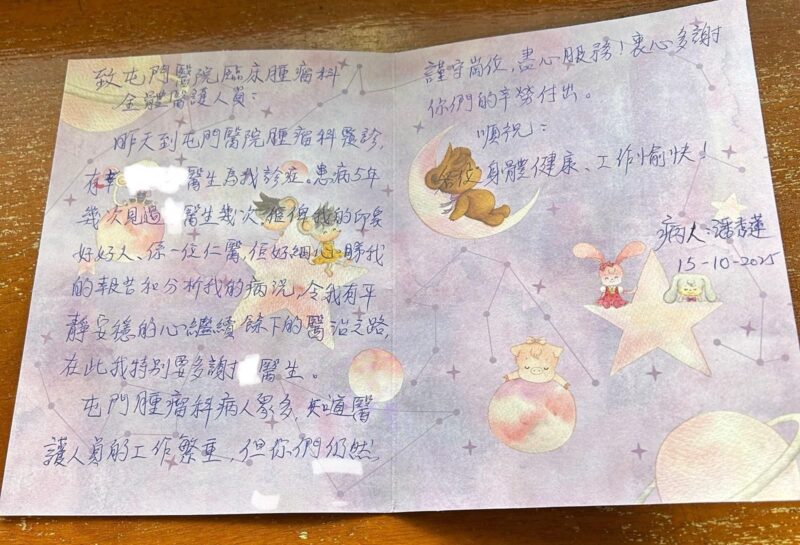 致屯門醫院臨床腫瘤科
全體醫護人員：
昨天到屯門醫院腫瘤科覆診，
有 醫生為我診症。患病5年
幾次見過 醫生幾次，但佢我的印象
好好人、係一位仁醫，佢好細心睇我
的報告和分析我的病況，令我有平
靜安穩的心繼續餘下的醫治之路，
在此我特別要多謝 醫生。
屯門腫瘤科病人眾多，知道醫
護人員的工作繁重，但你們仍然
謹守崗位，盡心服務！衷心多謝
你們的辛勞付出。
順祝：
各位 身體健康、工作愉快！
病人：潘杏蓮
15-10-2025